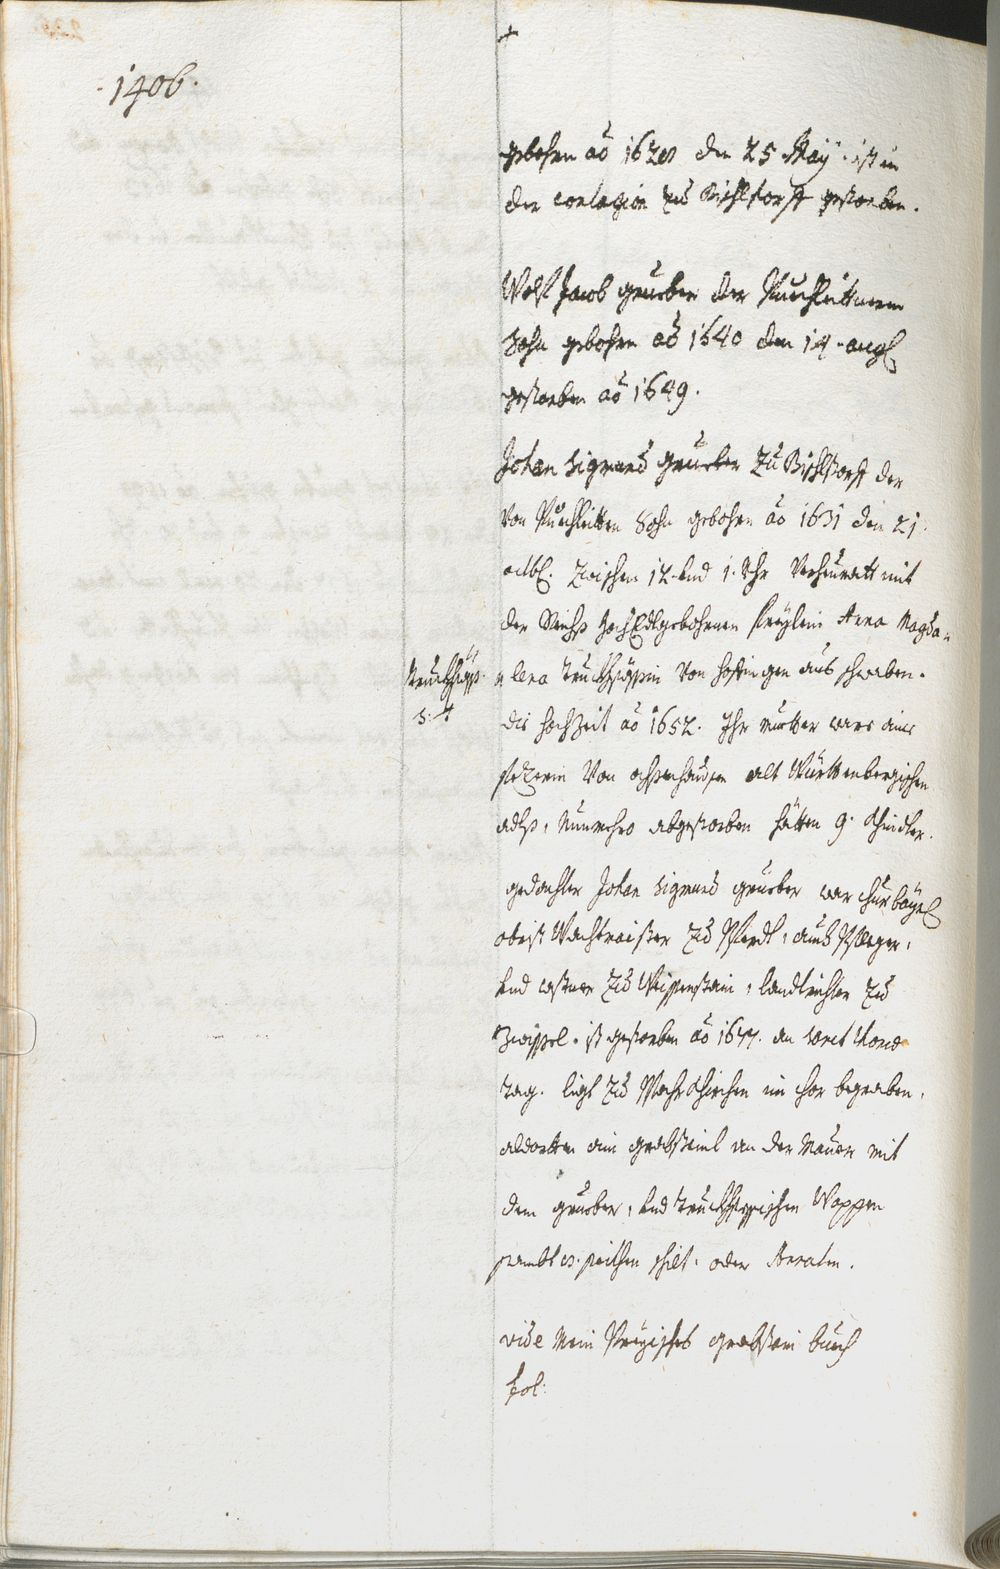 1406.
gebohrn aõ 1628 den 25 May. ist in
der contagion zu Bischlstorff gestorben.
Wolf Jacob grueber der Puechleitnerin
Sohn gebohrn aõ 1640 den 14. aug:
gestorben aõ 1649.
Johan Sigmund grueber zu Bischlstorff der
von Puechleitten Sohn gebohrn aõ 1631 den 21.
octob: zwischen 12. und 1. Uhr verheurath mit
der Reichs HochEdlgebohrnen freylein Anna Magda=
lena truchsässin von höfingen aus schwaben.
truchsäss
die hochzeit aõ 1652. Ihr Mutter ware eine
von alt Württenbergischen
adls, Nunmehro abgestorben hätten 9. Khinder.
gedachter Johan Sigmund grueber war churbayrl:
obrist Wachtmaister zu Pferdt, auch Pfleger,
und castner zu Weissenstain, landtrichter zu
Zwissl. ist gestorben aõ 1677. an
tag. ligt zu Khirchen im chor begraben,
aldorthen ein grabstainl an der Mauer mit
dem grueber, und truchsessischen Wappen
sambt schilt, oder Annaten.
vide Mein grabstain buech
fol: